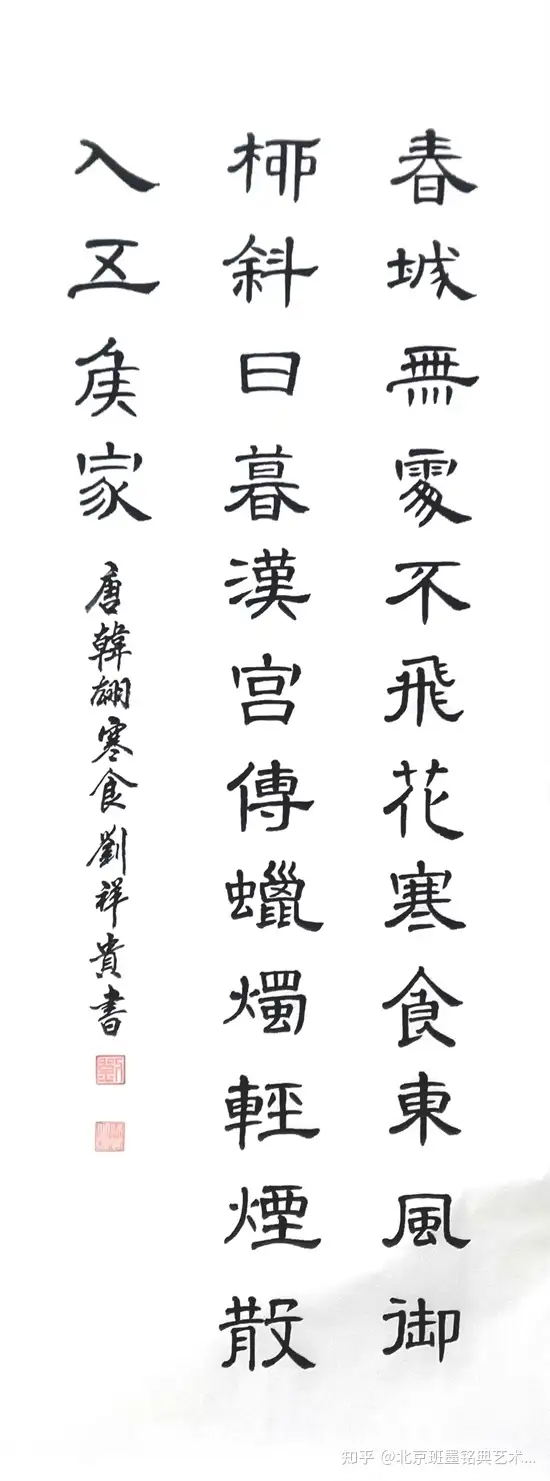 春城無處不飛花寒食東風御
柳斜日暮漢宫傳蠟燭輕煙散
入五侯家
唐韓翃寒食劉祥貴書
知乎 @北京班墨铭典艺术...